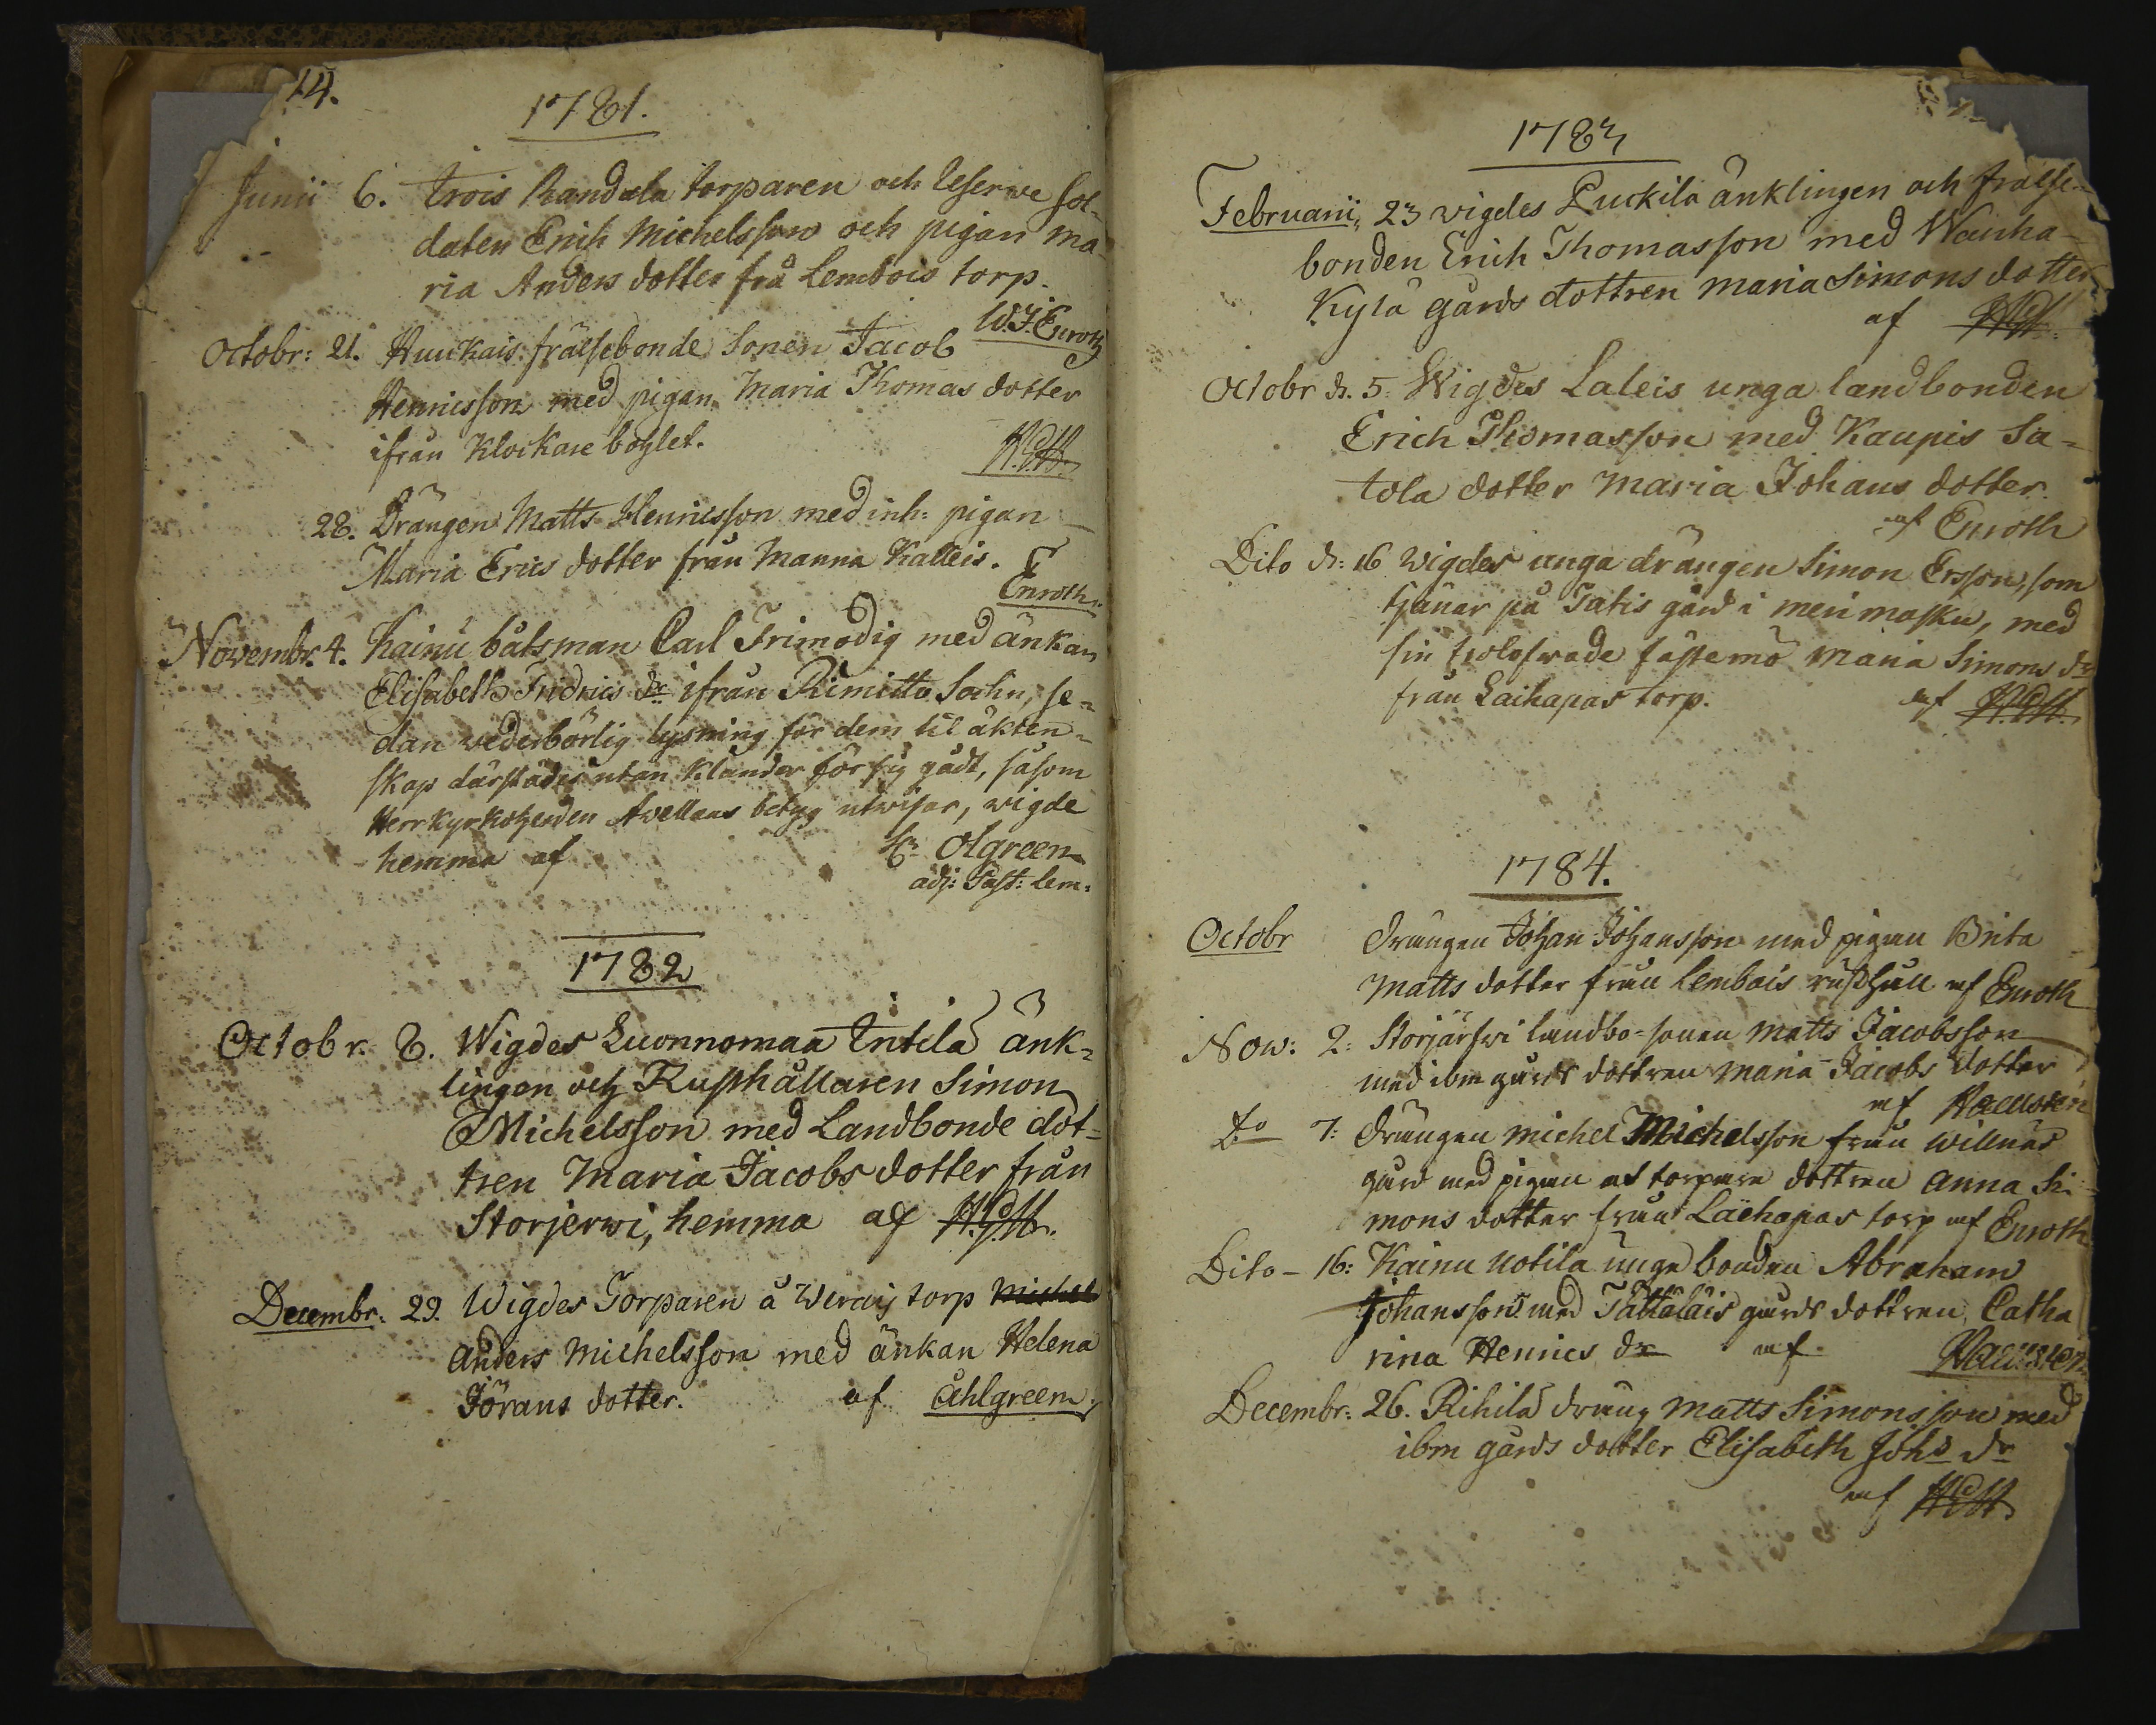 14.
1781.
Junii 6. Trois handala torparen och Reserwe sol-
daten Erich Michelsson och pigan Ma-
ria Anders dotter frå Lembois torp.
W.J. Enroth
Octobr: 21. Huukais frälsebonde Sonen Jacob
Henricsson med pigan Maria Thomas dotter
ifrån Klockare bohlet.
28. Drängen Matts Henricsson med inh: pigan
Maria Erics dotter från Manna Kalleis.
Enroth.
Novembr. 4. Kainu båtsman Carl Frimodig med änkan
Elisabeth Fridrics dr ifrån Rimitto Sochn, se-
dan wederbörlig lysning för dem til äkten-
skap därstädes utan klander för sig gådt, såsom
Herr Kyrkoherden Avellans betyg utwisar, wigde
hemma af Olgreen
adj: Past: Lem:
1782
Octobr. 8. Wigdes Luonnomaa Entilä änk-
lingen och Rusthållaren Simon
Michelsson med Landbonde dot-
tren Maria Jacobs dotter från
Storjerwi, hemma af
Decembr. 29. Wigdes Torparen å Weraij torp Michel
Anders Michelsson med änkan Helena
Jörans dotter. af Åhlgreen
1783
Februarii, 23 wigdes Puckila änklingen och frälse-
bonden Erich Thomasson med Wanha-
Kylä gårds dottren Maria Simons dotter
af
Octobr d. 5. Wigdes Laleis unga landbonden
Erich Thomasson med Kaupis Sa-
tola dotter Maria Johans dotter
af Enroth
Dito d: 16 wigdes unga drängen Simon Ersson, som
tjänar på Tatis gård i Merimasku, med
sin trolofwade fästemö Maria Simons dr
från Laihapas torp. af
1784.
Octobr Drängen Johan Johansson med pigan Brita
Matts dotter från Lembois rusthåll af Enroth
Now: 2: Storjärfwi landbo-sonen Matts Jacobsson
med ibm gårds dottren Maria Jacobs dotter
af
Do 7: Drängen Michel Michelsson från Willnäs
gård med pigan at torpare dottren Anna Si-
mons dotter från Laihapas torp af Enroth
Dito - 16: Kainu Uotila unge bonden Abraham
Johansson med Tättäläis gårds dottren Catha
rina Henrics dr af
Decembr: 26. Rihilä dräng Matts Simonsson med
ibm gårds dotter Elisabeth Johs dr
af